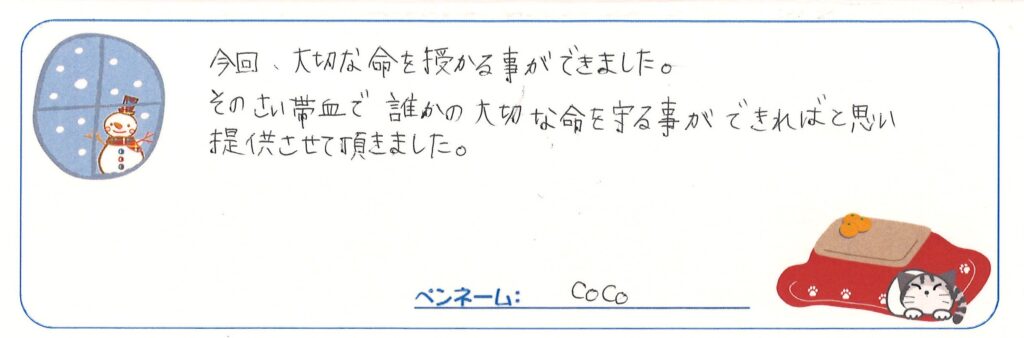 今回、大切な命を授かる事ができました。
そのさい帯血で 誰かの大切な命を守る事ができればと思い
提供させて頂きました。
ペンネーム: coco